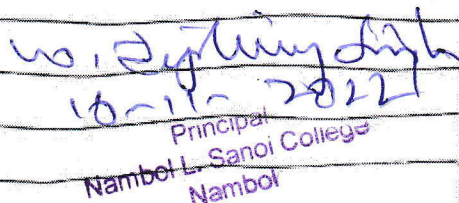 Singh
10-11-2022
Principal
Nambol L. Sanoi College
Nambol